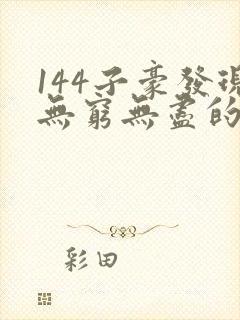 144子豪發現
無窮無盡的
彩田